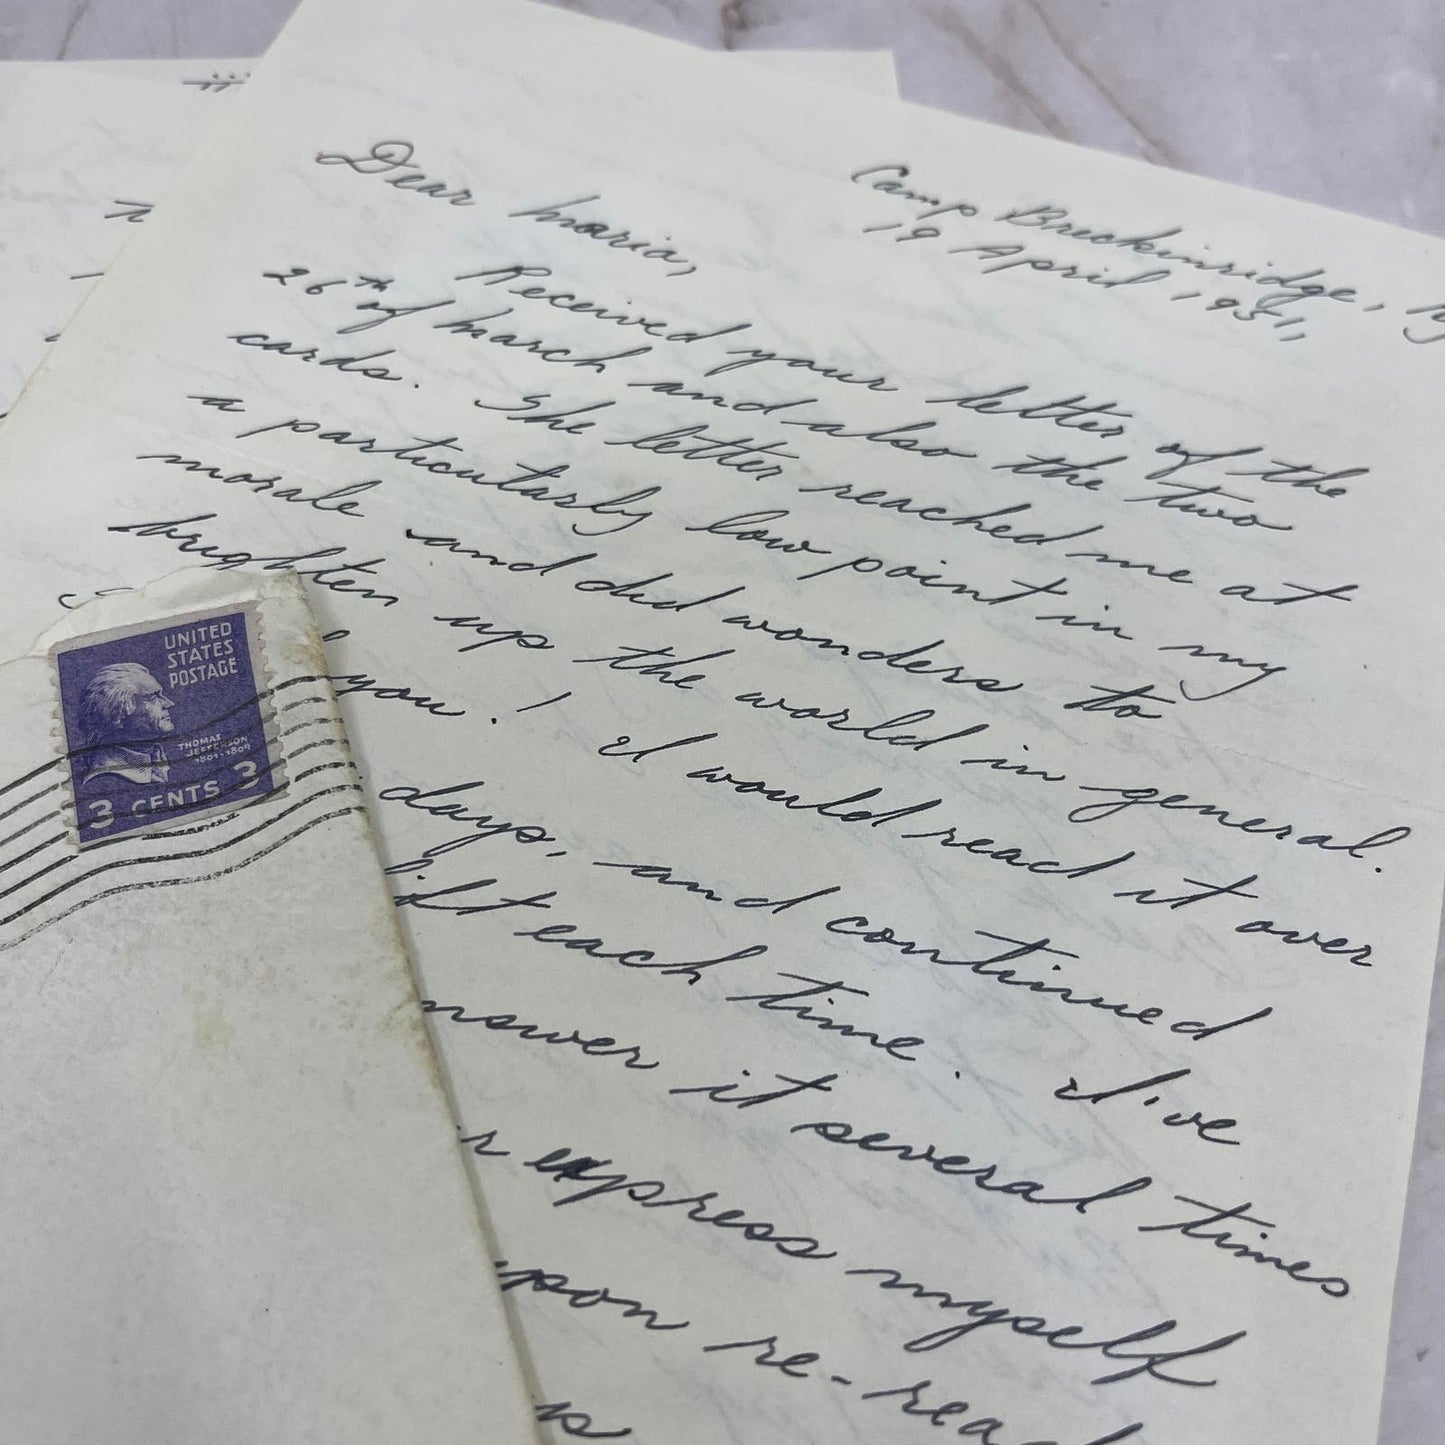 Camp Breckinridge, Ky
19 April 1951,
Dear Maria,
Received your letter of the
26th of March and also the two
cards. The letter reached me at
a particularly low point in my
morale and did wonders to
brighten up the world in general.
you! I would read it over
days, and continued
lift each time. I've
answer it several times
express myself
upon re-read
UNITED
STATES
POSTAGE
THOMAS
JEFFERSON
1801-1809
3 CENTS 3